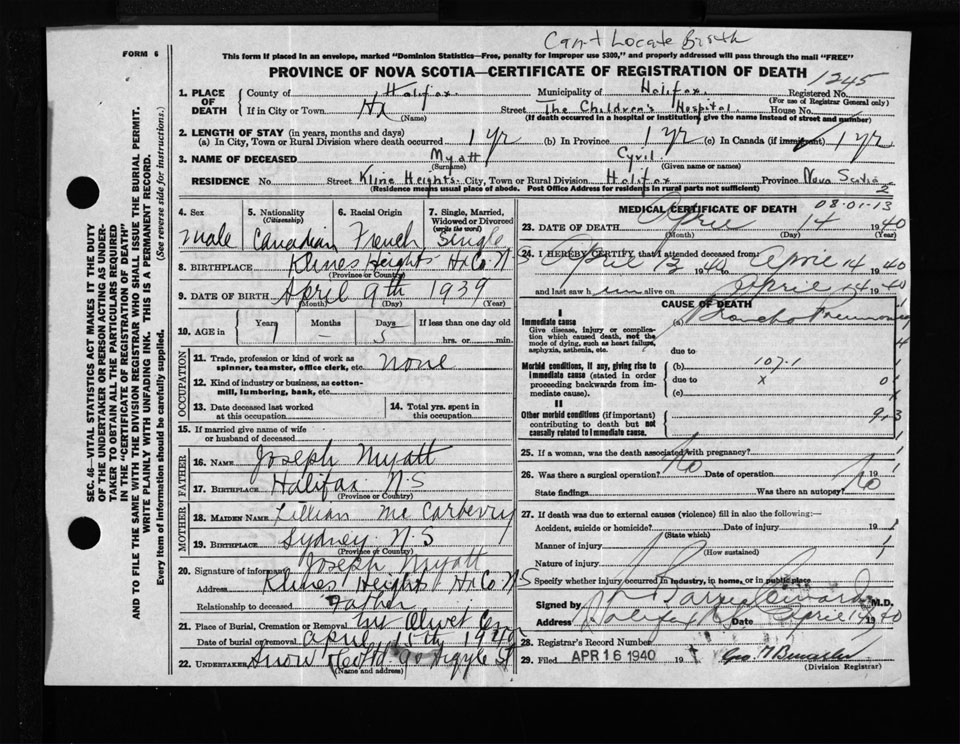 Can't Locate Birth
FORM 6
This form if placed in an envelope, marked "Dominion Statistics—Free, penalty for improper use $300," and properly addressed will pass through the mail "FREE"
PROVINCE OF NOVA SCOTIA—CERTIFICATE OF REGISTRATION OF DEATH
1245
1. PLACE OF DEATH County of Halifax Municipality of Halifax Registered No.
(For use of Registrar General only)
If in City or Town Hx (Name) Street The Children's Hospital House No.
(If death occurred in a hospital or institution, give the name instead of street and number)
2. LENGTH OF STAY (in years, months and days)
(a) In City, Town or Rural Division where death occurred 1 yr (b) In Province 1 yr (c) In Canada (if immigrant) 1 yr
3. NAME OF DECEASED Myatt (Surname) Cyril (Given name or names)
RESIDENCE No. Street Kline Heights City, Town or Rural Division Halifax Province Nova Scotia
(Residence means usual place of abode. Post Office Address for residents in rural parts not sufficient) 2
4. Sex Male
5. Nationality (Citizenship) Canadian
6. Racial Origin French
7. Single, Married, Widowed or Divorced (write the word) Single
8. BIRTHPLACE Klines Heights Hx Co N S
(Province or Country)
9. DATE OF BIRTH April 9th 1939
(Month) (Day) (Year)
10. AGE in Years 1 Months – Days 5 If less than one day old hrs. or min.
OCCUPATION
11. Trade, profession or kind of work as spinner, teamster, office clerk, etc. none
12. Kind of industry or business, as cotton-mill, lumbering, bank, etc.
13. Date deceased last worked at this occupation
14. Total yrs. spent in this occupation
15. If married give name of wife or husband of deceased
FATHER
16. NAME Joseph Myatt
17. BIRTHPLACE Halifax N.S
(Province or Country)
MOTHER
18. MAIDEN NAME Lillian Mc Carberry
19. BIRTHPLACE Sydney N.S
(Province or Country)
20. Signature of informant Joseph Myatt
Address Klines Heights Hx Co N S
Relationship to deceased Father
21. Place of Burial, Cremation or Removal Mt Olivet Cem
Date of burial or removal April 15th 1940
22. UNDERTAKER Snow 90 Argyle St
(Name and address)
MEDICAL CERTIFICATE OF DEATH 08-01-13
23. DATE OF DEATH April 14 1940
(Month) (Day) (Year)
24. I HEREBY CERTIFY, that I attended deceased from
April 13 1940 to April 14 1940
and last saw him alive on April 14 1940
CAUSE OF DEATH
I
Immediate cause (a) Broncho Pneumonia
Give disease, injury or complication which caused death, not the mode of dying, such as heart failure, asphyxia, asthenia, etc.
due to
Morbid conditions, if any, giving rise to immediate cause (stated in order proceeding backwards from immediate cause).
(b) 107.1
due to x
(c)
II
Other morbid conditions (if important) contributing to death but not causally related to immediate cause.
25. If a woman, was the death associated with pregnancy?
26. Was there a surgical operation? No Date of operation 19
State findings Was there an autopsy? No
27. If death was due to external causes (violence) fill in also the following:—
Accident, suicide or homicide? Date of injury 19
(State which)
Manner of injury
(How sustained)
Nature of injury
Specify whether injury occurred in industry, in home, or in public place
Signed by M.D.
Address Halifax N.S. Date April 1940
28. Registrar's Record Number
29. Filed APR 16 1940 19 Geo.
(Division Registrar)
SEC. 46—VITAL STATISTICS ACT MAKES IT THE DUTY
OF THE UNDERTAKER OR PERSON ACTING AS UNDER-
TAKER TO OBTAIN ALL THE PARTICULARS REQUIRED
IN THE "CERTIFICATE OF REGISTRATION OF DEATH"
AND TO FILE THE SAME WITH THE DIVISION REGISTRAR WHO SHALL ISSUE THE BURIAL PERMIT.
WRITE PLAINLY WITH UNFADING INK. THIS IS A PERMANENT RECORD.
Every item of information should be carefully supplied. (See reverse side for instructions.)